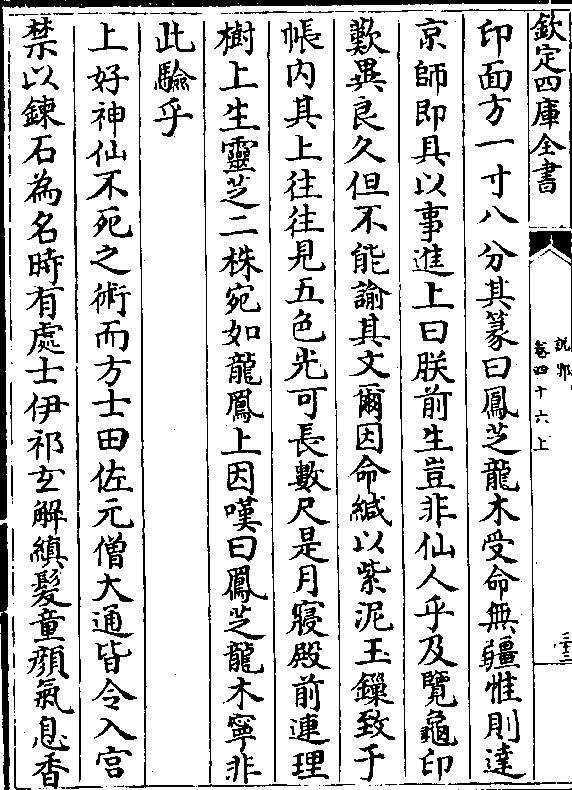 欽定四庫全書
說郛
卷四十六上
三十三
印面方一寸八分其篆曰鳳芝龍木受命無疆惟則達
京師即具以事進上曰朕前生豈非仙人乎及覽龜印
歎異良久但不能諭其文爾因命緘以紫泥玉鏁致于
帳内其上往往見五色光可長數尺是月寢殿前連理
樹上生靈芝二株宛如龍鳳上因嘆曰鳳芝龍木寧非
此驗乎
上好神仙不死之術而方士田佐元僧大通皆令入宫
禁以鍊石為名時有處士伊祁𤣥解縝髮童顔氣息香